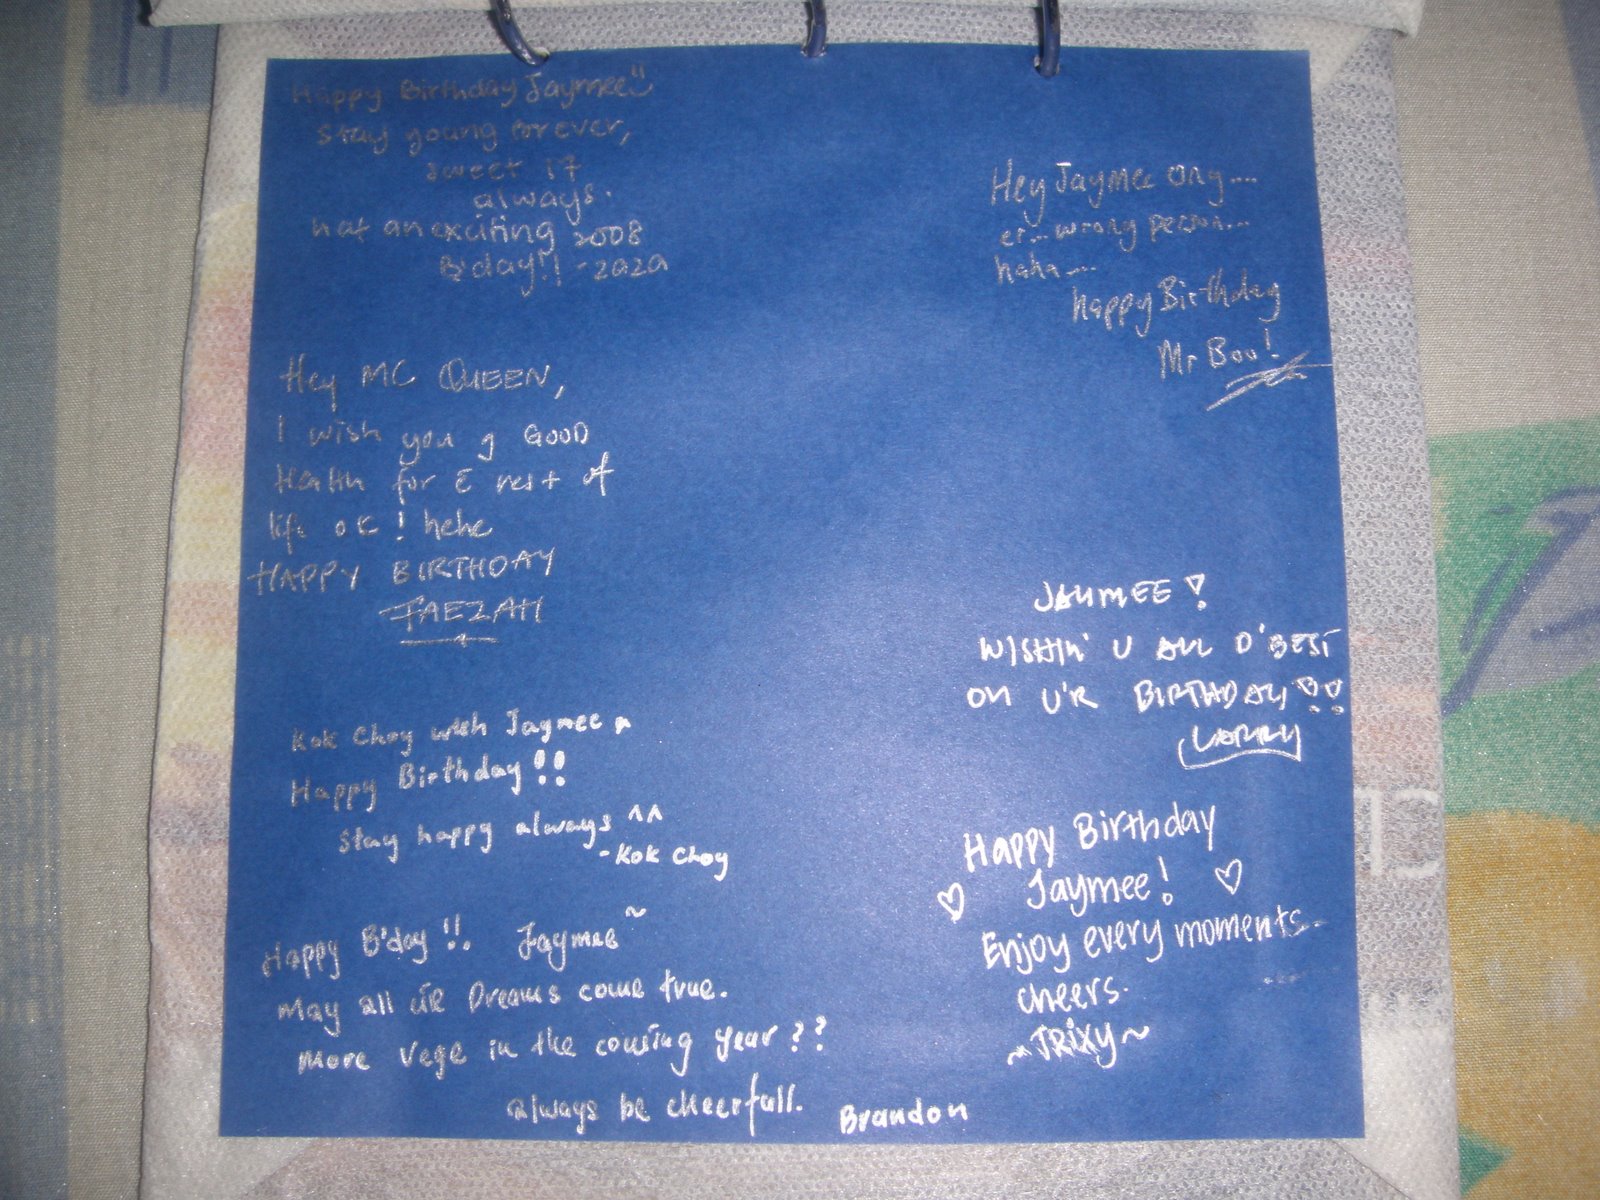 Happy Birthday Jaymee
stay young forever,
sweet 17
always.
hat an exciting 2008
B'day!! -zaza
Hey MC QUEEN,
I wish you g GOOD
Health for E rest of
life ok! hehe
HAPPY BIRTHDAY
FAEZAH
Kok Choy wish Jaymee a
Happy Birthday!!
stay happy always ^^
-Kok Choy
Happy B'day!!. Jaymee~
May all UR Dreams come true.
More Vege in the couming year??
always be cheerfull. Brandon
Hey Jaymee Ong....
er...wrong person...
haha....
Happy Birthday
Mr Boo!
JAYMEE!
WISHIN' U ALL D'BEST
ON U'R BIRTHDAY!!
LARRY
Happy Birthday
Jaymee!
Enjoy every moments.
cheers.
~TRiXY~